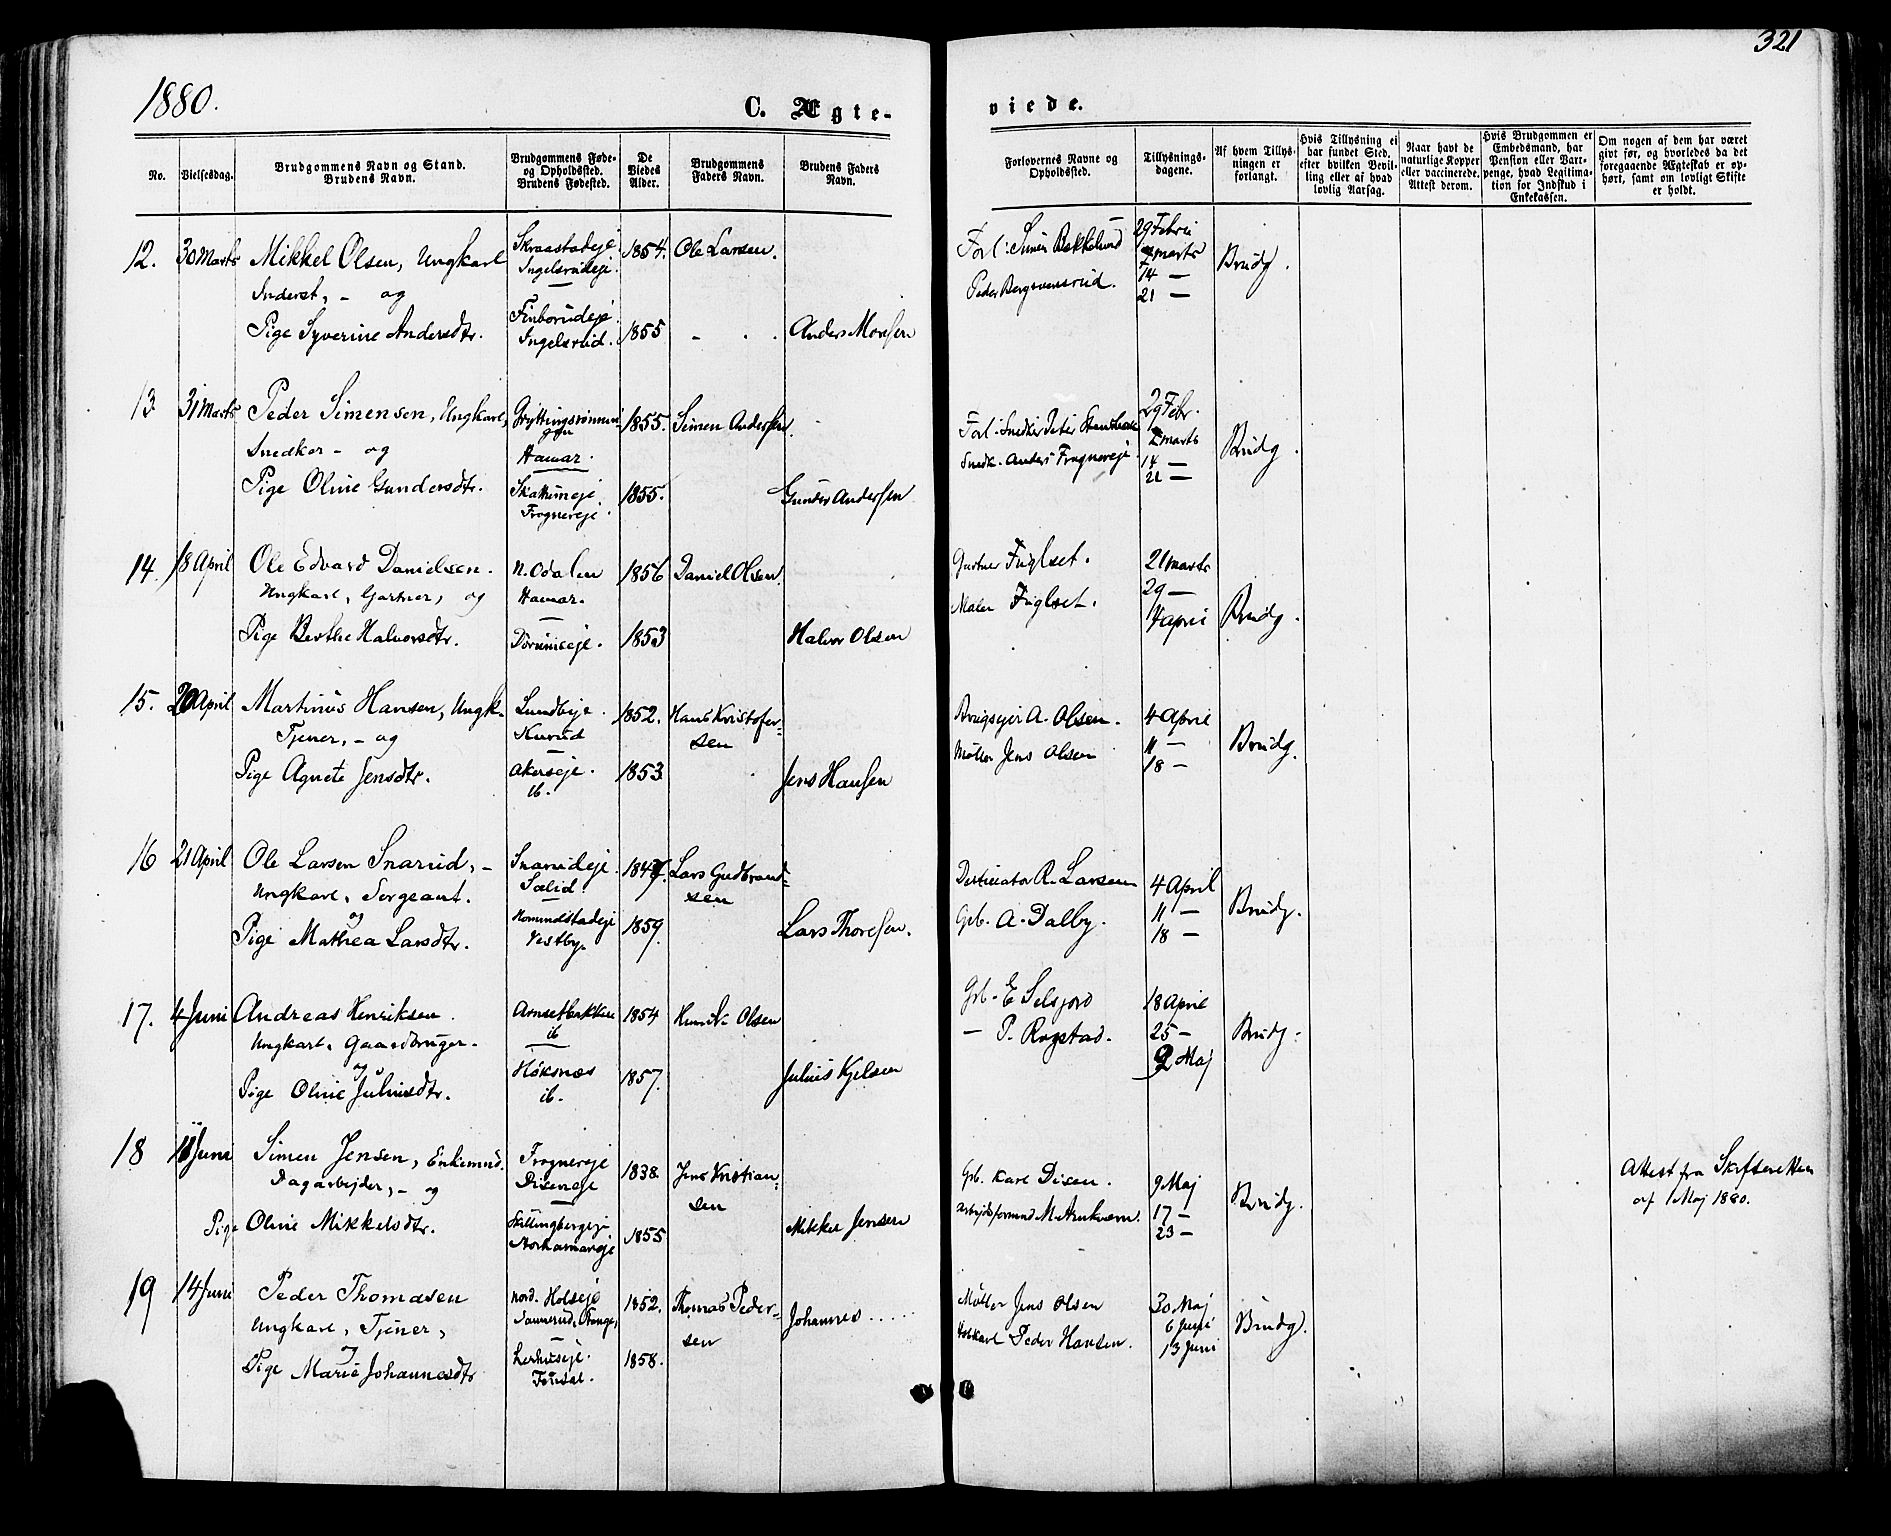 1880.
321
C. Ægte-
viede.
No.
Vielsesdag.
Brudgommens Navn og Stand.
Brudens Navn.
Brudgommens Føde-
og Opholdssted.
Brudens Fødested.
De
Viedes
Alder.
Brudgommens
Faders Navn.
Brudens Faders
Navn.
Forlovernes Navne og
Opholdssted.
Tillysnings-
dagene.
Af hvem Tillys-
ningen er
forlangt.
Hvis Tillysning ei
har fundet Sted,
efter hvilken Bevil-
ling eller af hvad
lovlig Aarsag.
Naar havt de
naturlige Kopper
eller vaccinerede.
Attest derom.
Hvis Brudgommen er
Embedsmand, har
Pension eller Vart-
penge, hvad Legitima-
tion for Indskud i
Enkekassen.
Om nogen af dem har været
givt før, og hvorledes da det
foregaaende Ægteskab er op-
hørt, samt om lovligt Skifte
er holdt.
12. 30 Marts Mikkel Olsen, Ungkarl
Inderst, - og
Pige Syverine Andersdtr.
Skraastadeje
Ingelsrudeje
Finborudeje
Ingelsrud.
1854. Ole Larsen.
1855 Anders Monsen
Forl: Simen Bakkelund
Peder Bergsvensrud.
29 Febru
marts
14 —
21 —
Brudg.
13 31 Marts Peder Simensen, Ungkarl,
Snedker - og
Pige Oline Gundersdtr.
Hamar.
Skattumeje
Frognereje
1855. Simen Andersen.
1855. Gunder Andersen
Forl: Snedker Peter
Snedk. Anders Frognereje
29 Febr.
marts
14 —
21 —
Brudg.
14. 18 April Ole Edvard Danielsen.
Ungkarl, Gartner, og
Pige Berthe Halvorsdtr.
N. Odalen
Hamar.
1856 Daniel Olsen
1853 Halvor Olsen
Gartner Fuglset.
Maler Fuglset.
21 marts
29 —
4 april
Brudg.
15. 20 April Martinus Hansen, Ungk.
Tjener, - og
Pige Agnete Jensdtr.
Lundeje
Kurud
Akerseje.
ib.
1852. Hans Kristofer-
sen
1853 Jens Hansen
Brugsejer A. Olsen.
Møller Jens Olsen
4 April
11 —
18 —
Brudg.
16 21 April Ole Larsen Snarud, -
Ungkarl, Sergeant.
og
Pige Mathea Larsdtr.
Snarudeje
Sælid.
Vestby.
1847. Lars Gudbrand-
sen
1859. Lars Thoresen.
R. Larsen
Grb. A. Dalby.
4 April
11 —
18 —
Brudg.
17. 4 Juni Andreas Henriksen.
Ungkarl, Gaardbruger.
og
Pige Oline Juliusdtr.
Arnsetbakken
ib
Höksnæs
ib.
1854 Henrik Olsen
1857. Julius Kjelsen
Grb. E Selsjord
— P. Rogstad.
18 April
25 —
2 Maj
Brudg.
18 11 Juni Simen Jensen, Enkemnd.
Dagarbejder, - og
Pige Oline Mikkelsdtr.
Frognereje
Diseneje
Skillingbergeje
Storhamareje
1838. Jens Kristian-
sen
1855 Mikkel Jensen
Grb. Karl Disen.
Arbejdsformand M.
9 Maj
17 —
23 —
Brudg.
Attest fra Skifteretten
af 1 Maj 1880.
19 14 Juni Peder Thomasen
Ungkarl, Tjener,
og
Pige Marie Johannesdtr
nord. Holseje
Sannerud, Stange,
Furusæt.
1852. Thomas Peder-
sen
1858. Johannes . . . .
Møller Jens Olsen
Peder Hansen.
30 Maj
6 Juni
13 Juni
Brudg.